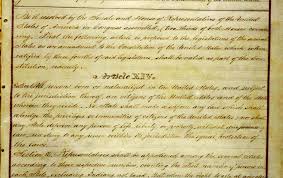 Be it resolved by the Senate and House of Representatives of the United
States of America in Congress assembled, (two thirds of both Houses concurring,)
That the following article be proposed to the Legislatures of the several
States as an amendment to the Constitution of the United States, which, when
ratified by three fourths of said Legislatures, shall be valid as part of the Con-
stitution, namely:
Article XIV.
persons born or naturalized in the United States, and subject
to the jurisdiction thereof, are citizens of the United States and of the State
wherein they reside. No State shall make or enforce any law which shall
abridge the privileges or immunities of citizens of the United States; nor shall
any State deprive any person of life, liberty, or property, without due process
nor deny to any person within its jurisdiction the equal protection of
the laws.
Section 2. Representatives shall be apportioned among the several States
according to their respective numbers, counting the whole number of persons in
each State, excluding Indians not taxed. But when the right to vote at any